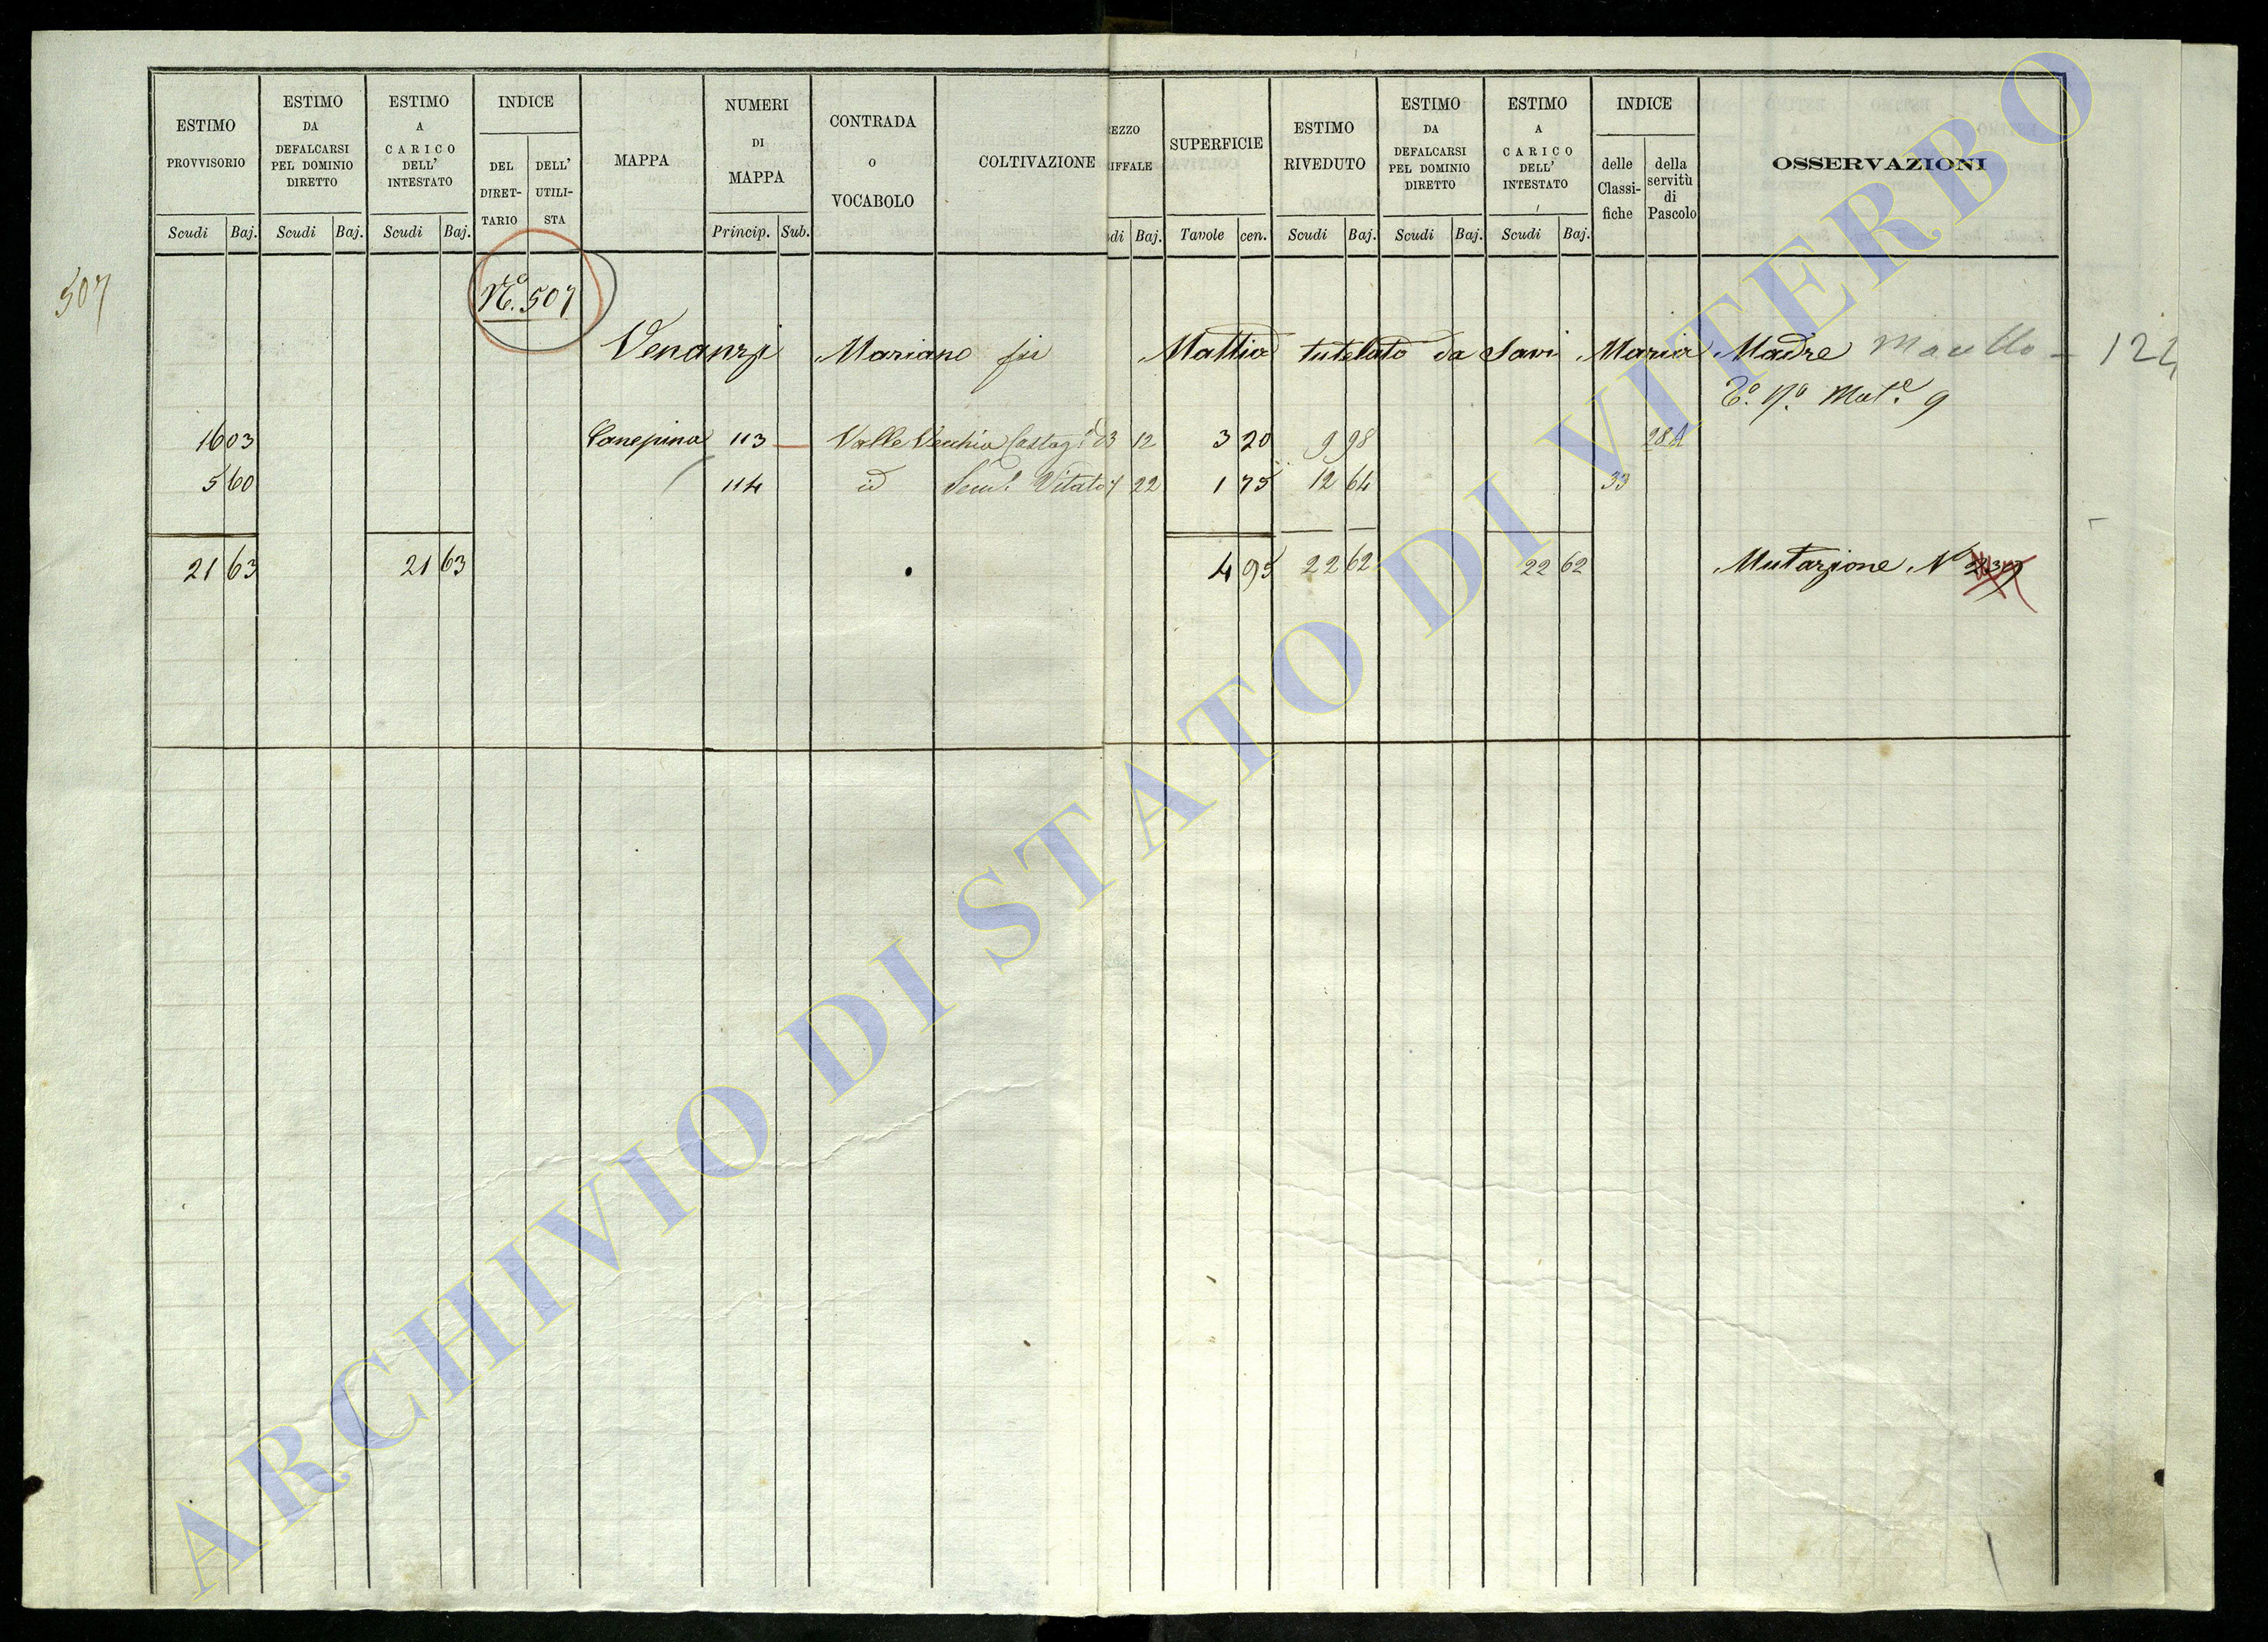 ESTIMO PROVVISORIO Scudi Baj.
ESTIMO DA DEFALCARSI PEL DOMINIO DIRETTO Scudi Baj.
ESTIMO A CARICO DELL' INTESTATO Scudi Baj.
INDICE DEL DIRET- TARIO DELL' UTILI- STA
MAPPA
NUMERI DI MAPPA Princip. Sub.
CONTRADA O VOCABOLO
COLTIVAZIONE
EZZO IFFALE di Baj.
SUPERFICIE Tavole cen.
ESTIMO RIVEDUTO Scudi Baj.
ESTIMO DA DEFALCARSI PEL DOMINIO DIRETTO Scudi Baj.
ESTIMO A CARICO DELL' INTESTATO Scudi Baj.
INDICE delle Classi- fiche della servitù di Pascolo
OSSERVAZIONI
507
N.º 507
Venanzi Mariano Mattia tutelato da Savi Maria Madre 122
9
16 03 Canepina 113 Valle Vecchia 3 12 3 20 9 98
5 60 114 id Vitato 7 22 1 75 12 64 33
21 63 21 63 4 95 22 62 22 62 Mutazione Nº
ARCHIVIO DI STATO DI VITERBO